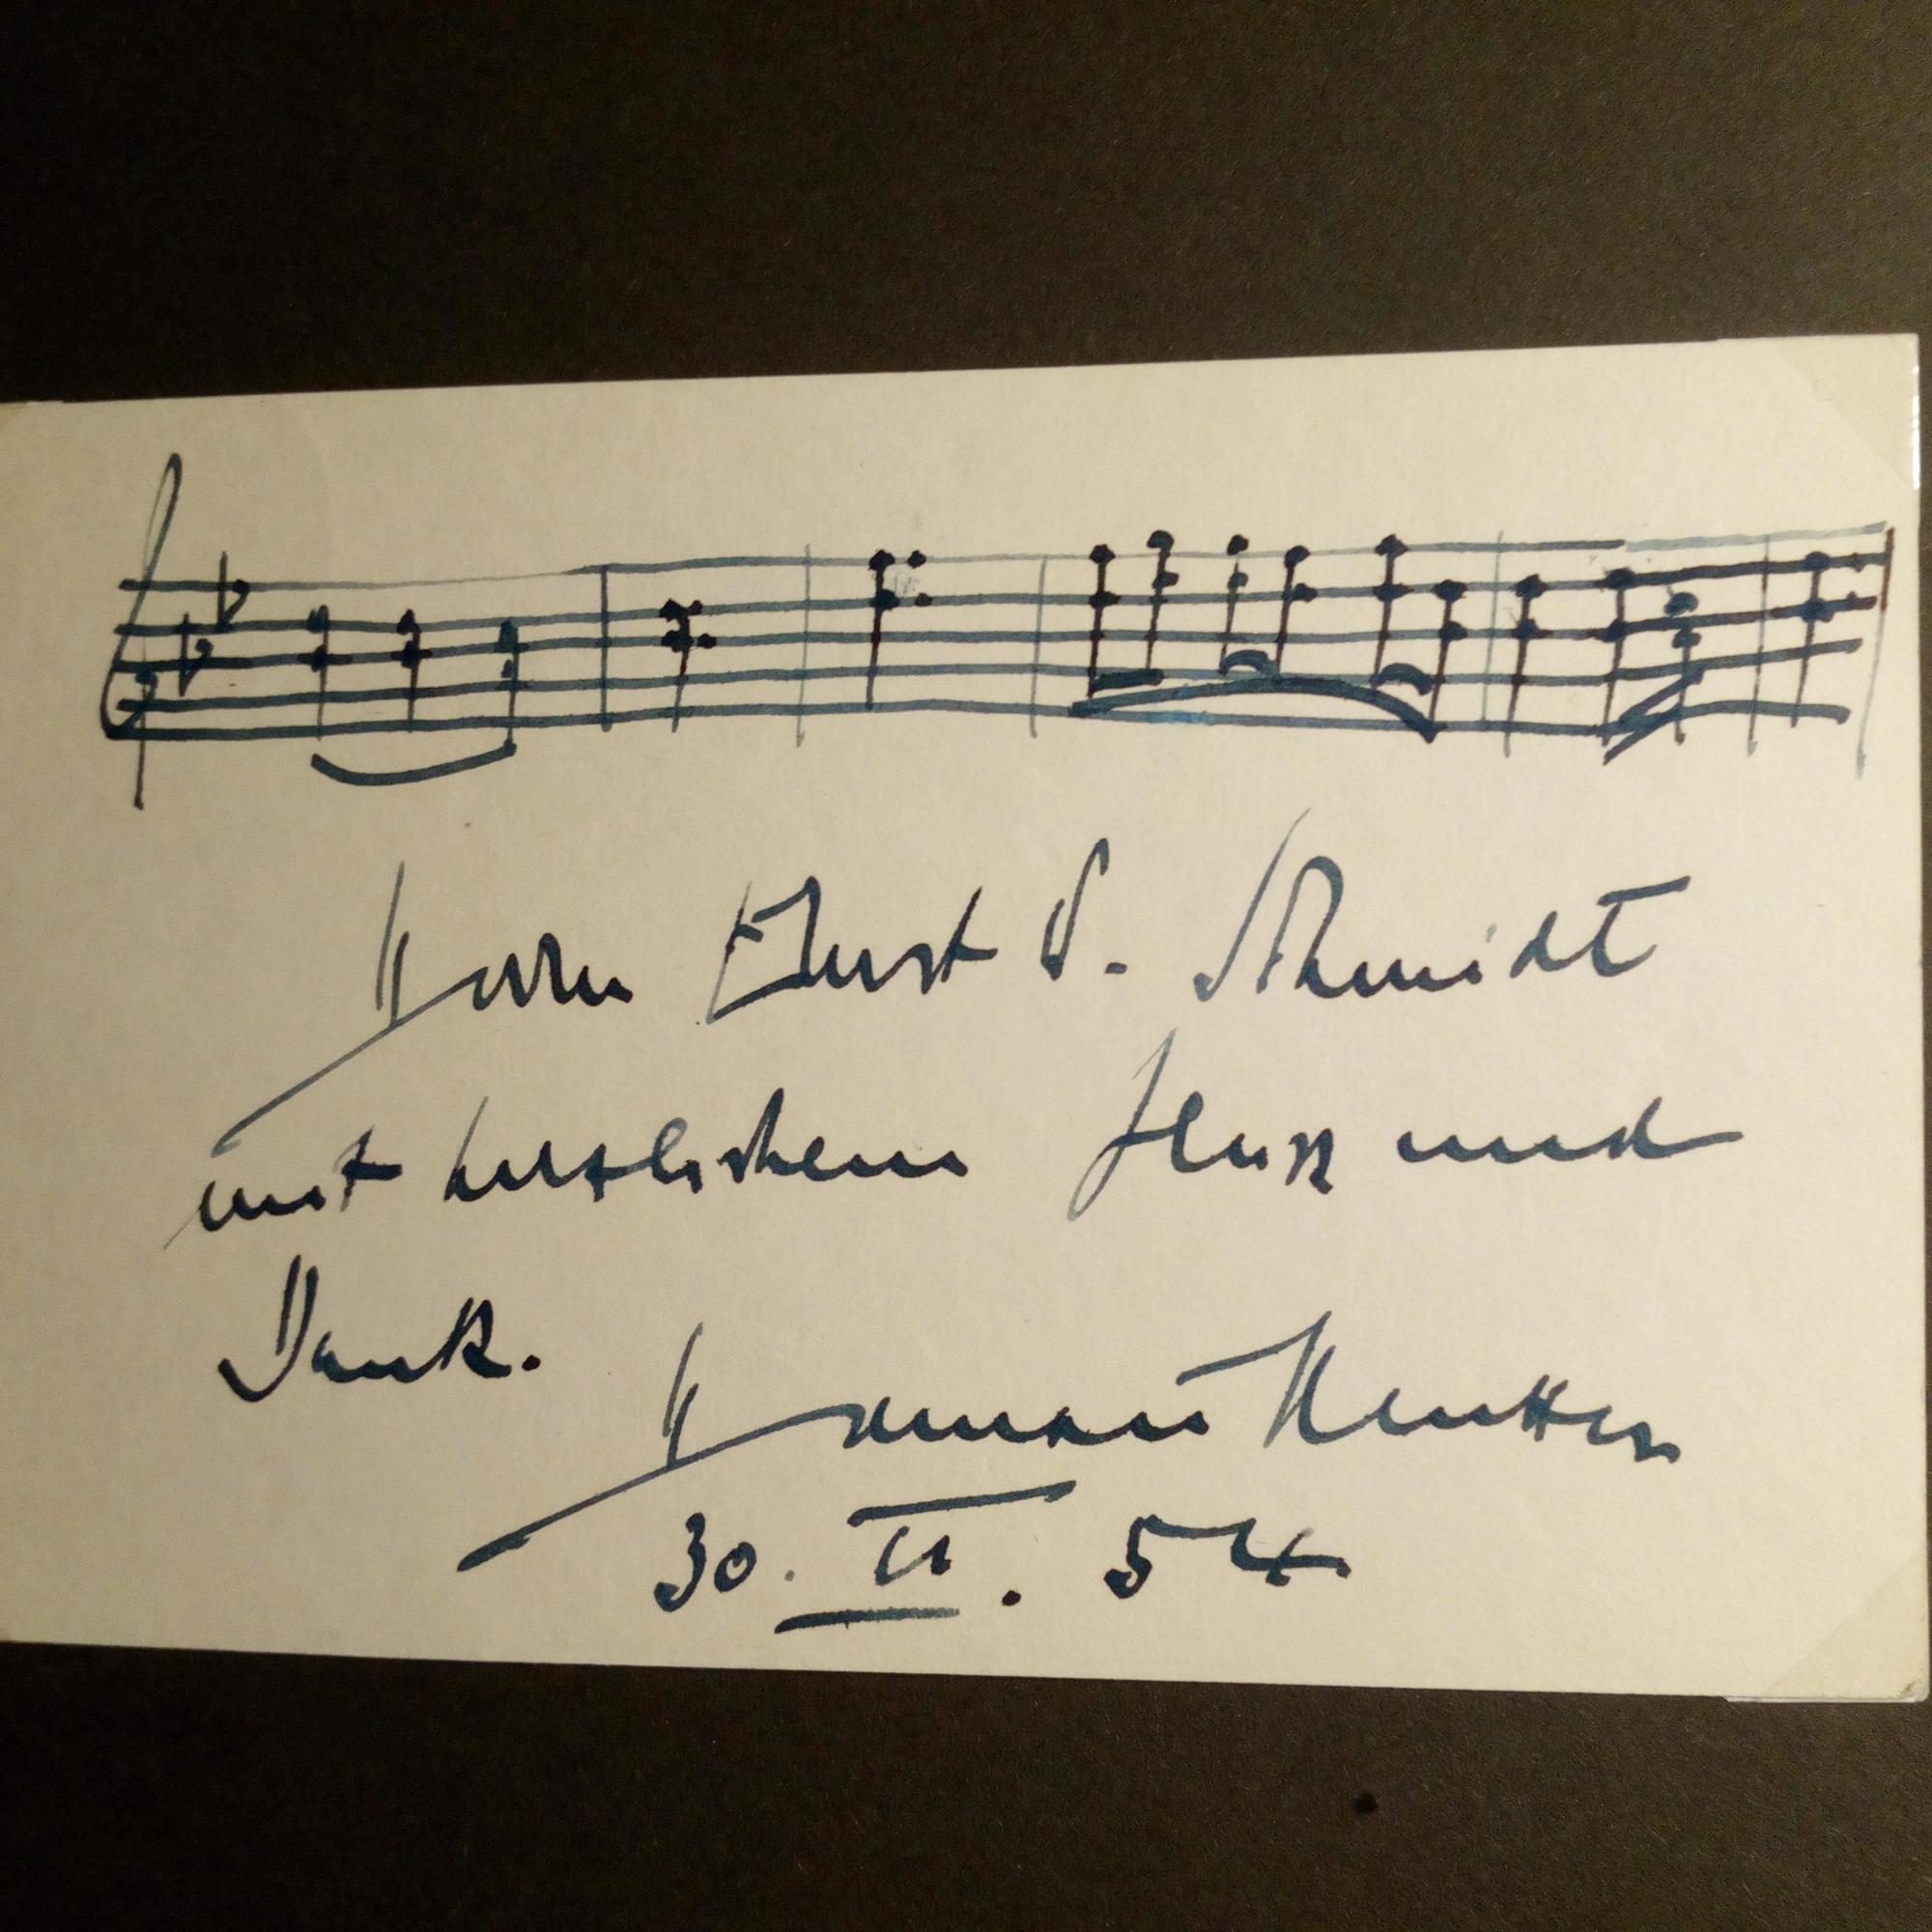 Herrn Ernst V. Schmidt
mit herzlichem Gruss und
Dank.
Hermann Reutter
30. VI. 54